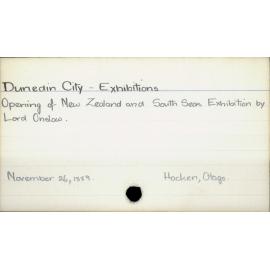 Dunedin City - Exhibitions
Opening of New Zealand and South Seas Exhibition by
Lord Onslow.
November 26, 1889.
Hocken, Otago.